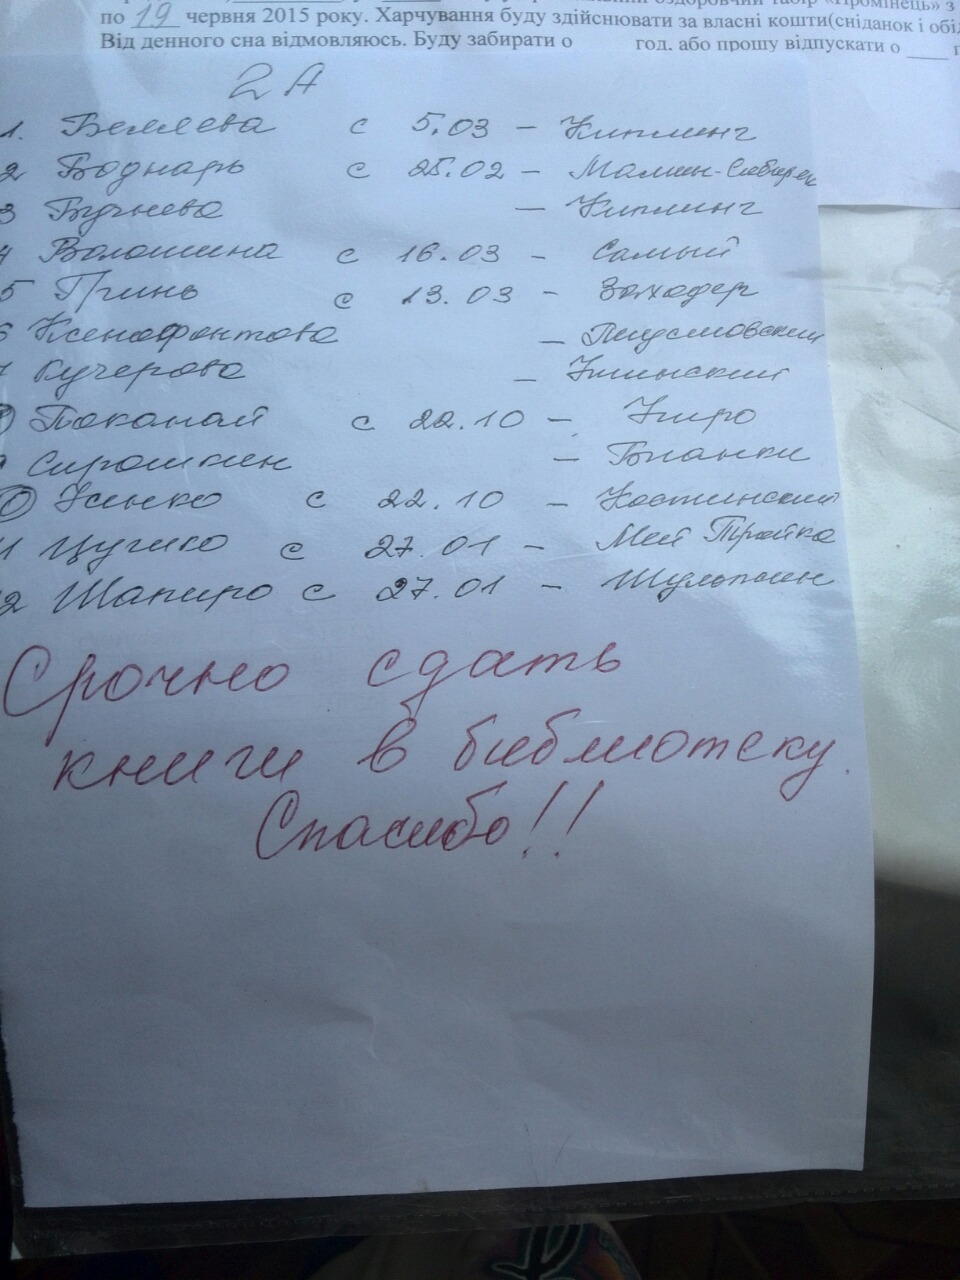 оздоровчий табір «Промінець» з
по 19 червня 2015 року. Харчування буду здійснювати за власні кошти(сніданок і обід
Від денного сна відмовляюсь. Буду забирати о год. або прошу відпускати о
2 А
1. Беляева с 5.03 - Киплинг
2 Боднарь с 25.02 - Мамин-Сибиряк
3 Бучнева - Киплинг
4 Волошина с 16.03 - Самый
5 Гринь с 13.03 - Заходер
6 Ксенофонтова -
7 Кучерова - Ушинский
8 с 22.10 -
9 Сирошкин - Бианки
10 Усенко с 22.10 -
11 с 27.01 -
12 Шапиро с 27.01 -
Срочно сдать
книги в библиотеку.
Спасибо!!